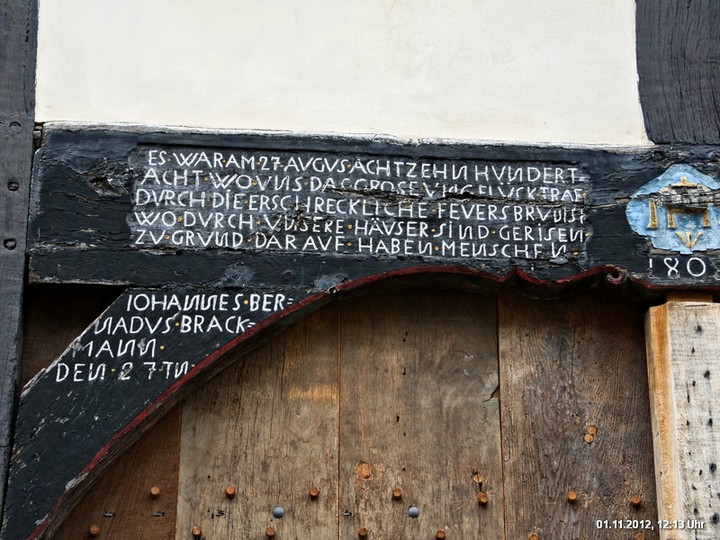 ES·WARAM·27·AUGVS·ACHTZEHN HUNDERT-
ACHT·WO·VNS·DAS GROSE VNGELUCK TRAF
DVRCH·DIE·ERSCHRECKLICHE FEVERSBRVNST
WO·DVRCH·VNSERE·HÄVSER·SIND·GERISEN
ZV·GRVND·DARAVF·HABEN·MENSCHEN·
IHS
180
IOHANNES·BER=
NADVS·BRACK=
MANN·
DEN·27TN·
01.11.2012, 12:13 Uhr